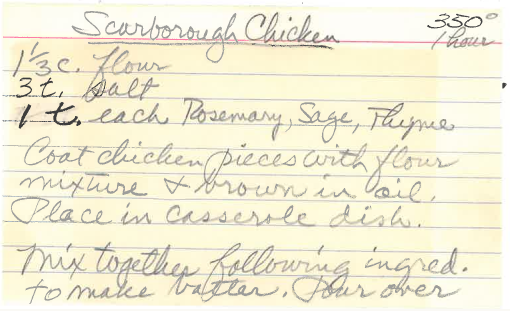 Scarborough Chicken 350°
1 hour
1 1/3 c. flour
3 t. salt
1 t. each Rosemary, Sage, Thyme
Coat chicken pieces with flour
mixture & brown in oil.
Place in casserole dish.
Mix together following ingred.
to make batter. Pour over